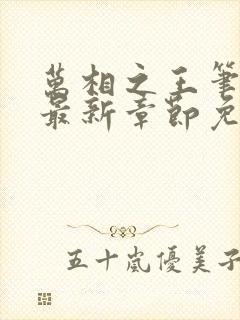 萬相之王筆
最新章節免
五十嵐優美子